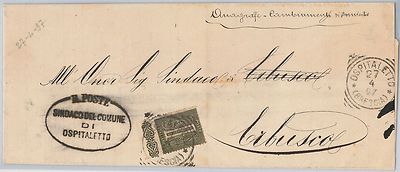 27-4-97
Anagrafe - Cambiamenti d'
All' Onor Sig Sindaco di Erbusco
OSPITALETTO
27
4
97
(BRESCIA)
R. POSTE
SINDACO DEL COMUNE
DI
OSPITALETTO
Erbusco